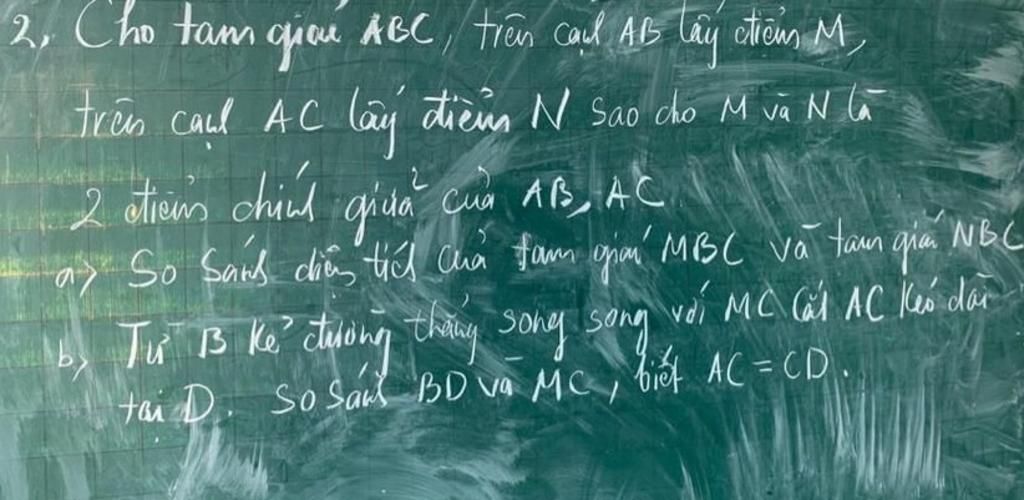 2, Cho tam giác ABC, trên cạnh AB lấy điểm M,
trên cạnh AC lấy điểm N sao cho M và N là
2 điểm chính giữa của AB, AC
a) So sánh diện tích của tam giác MBC và tam giác NBC
b) Từ B kẻ đường thẳng song song với MC cắt AC kéo dài
tại D. So sánh BD và MC, biết AC = CD.